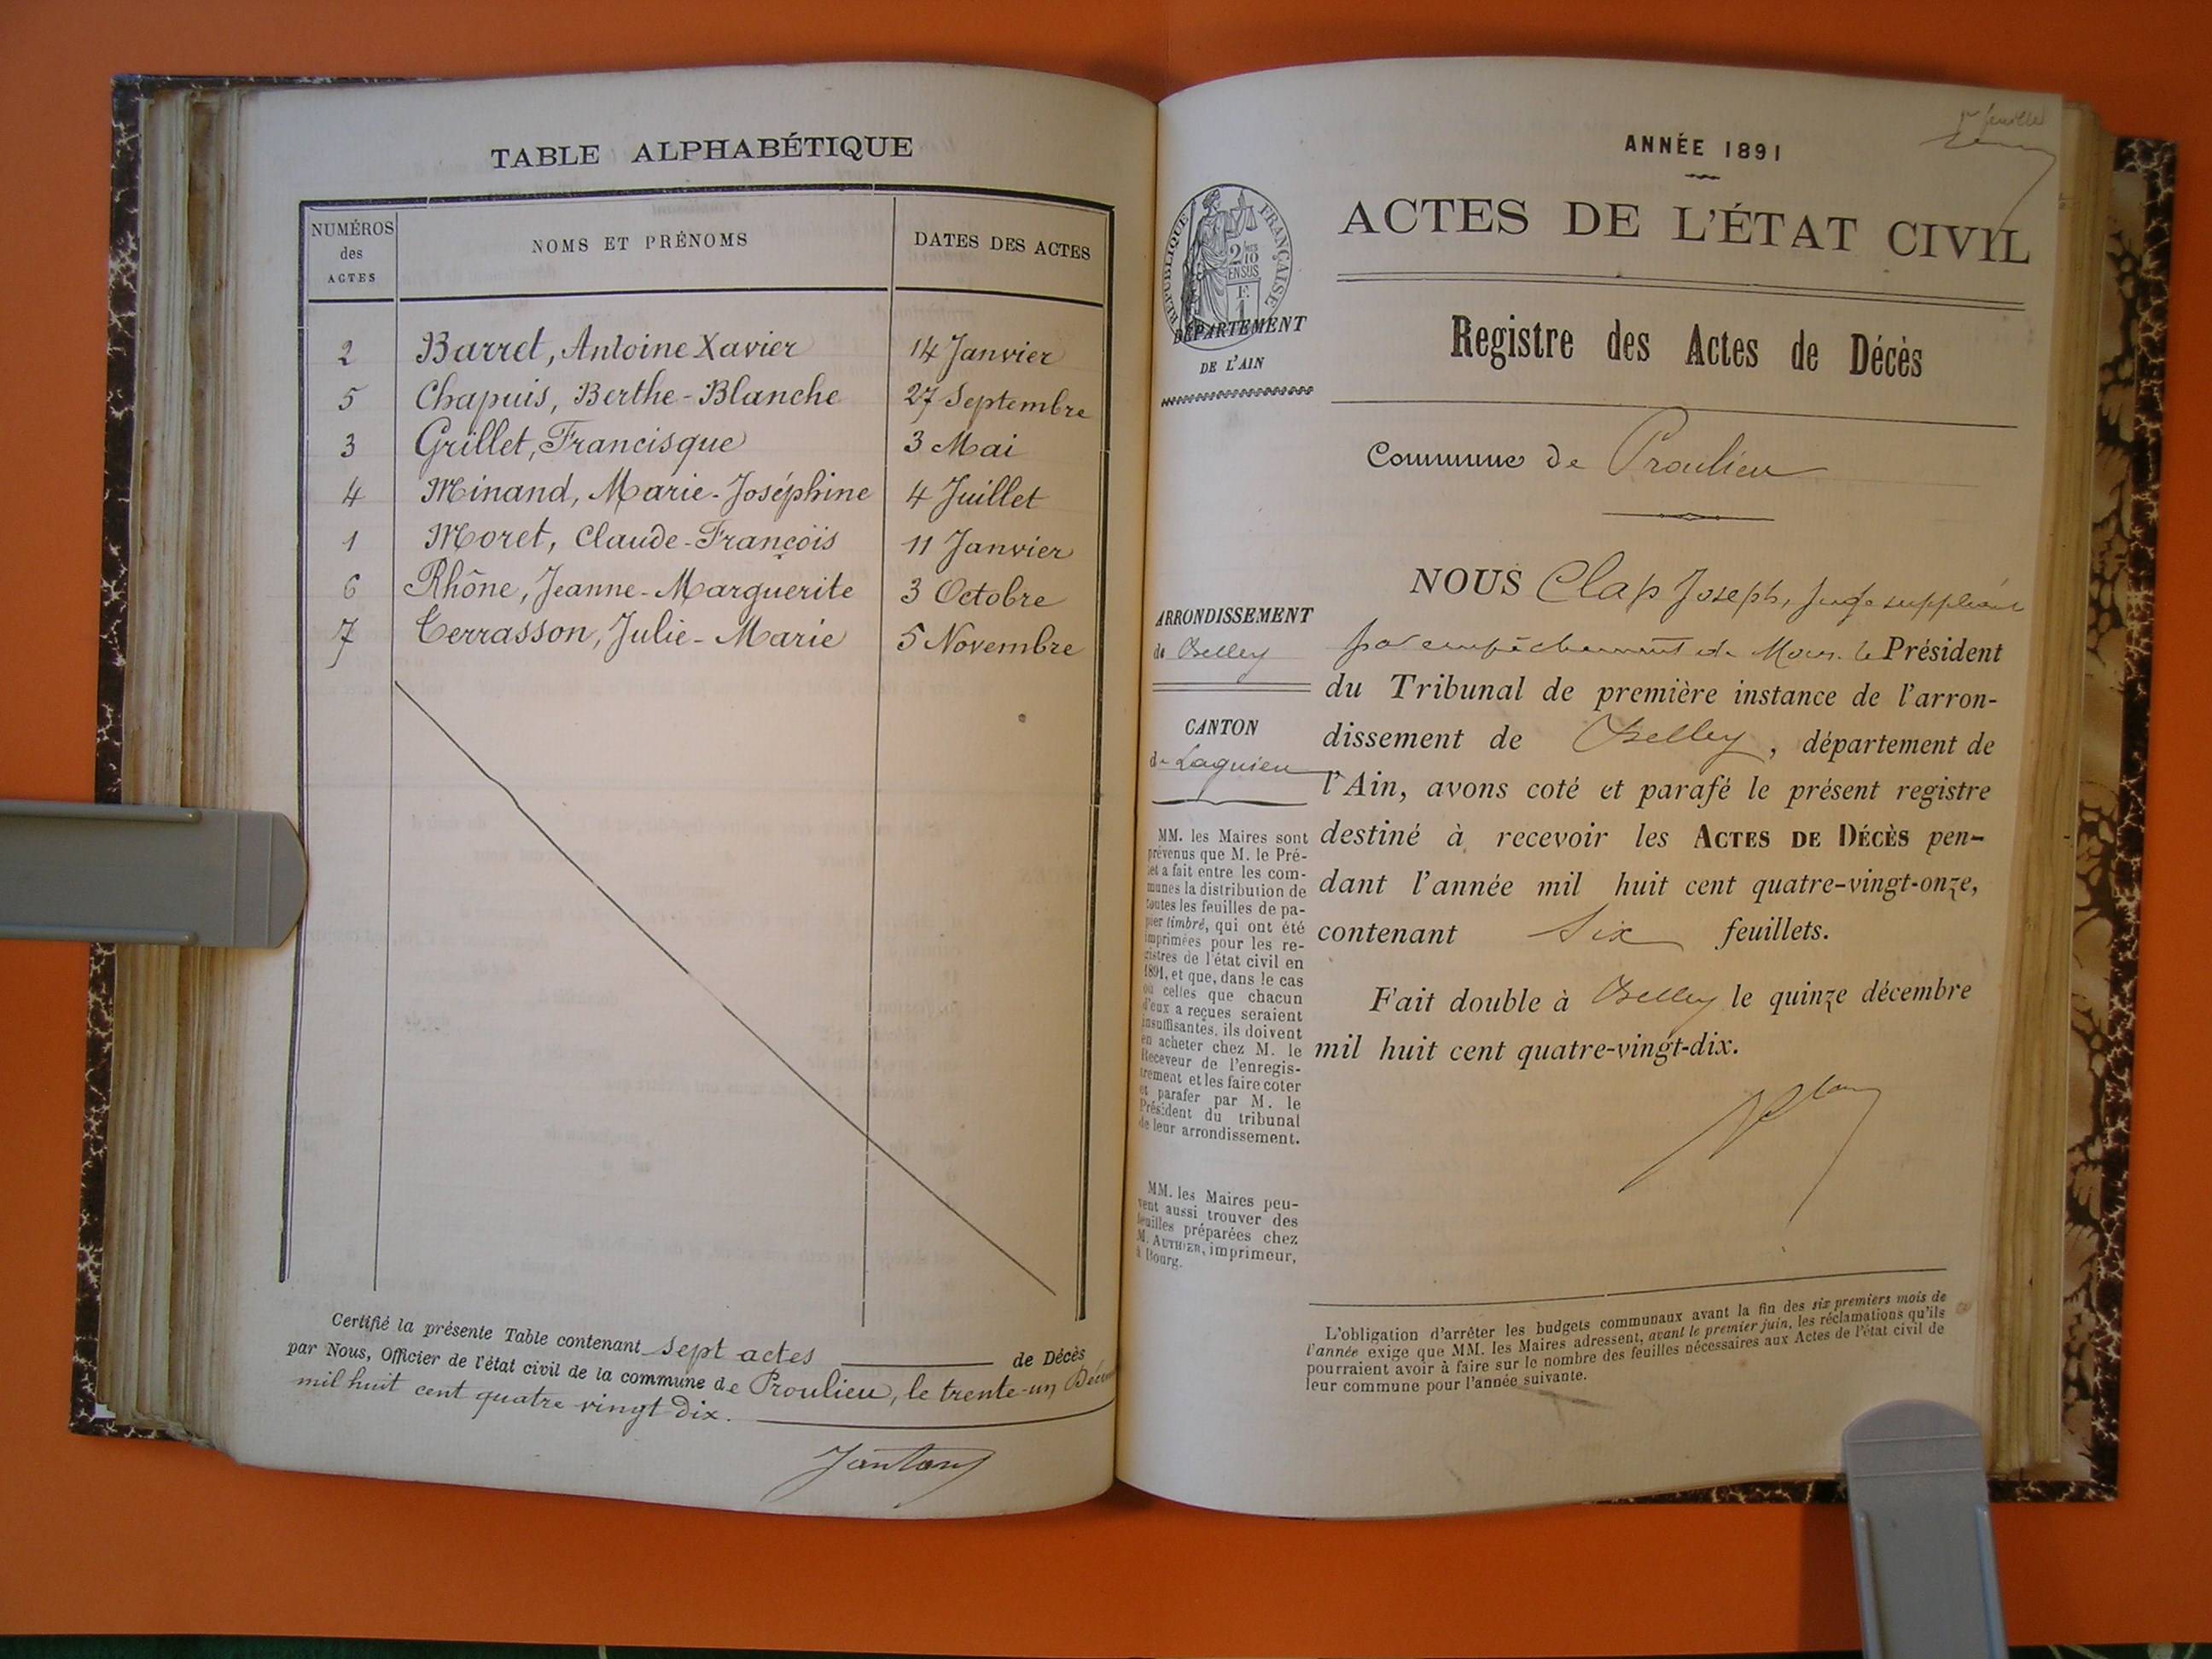 TABLE ALPHABÉTIQUE
NUMÉROS des ACTES
NOMS ET PRÉNOMS
DATES DES ACTES
2 Barret, Antoine Xavier 14 Janvier
5 Chapuis, Berthe-Blanche 27 Septembre
3 Grillet, Francisque 3 Mai
4 Minand, Marie-Joséphine 4 Juillet
1 Moret, Claude-François 11 Janvier
6 Rhône, Jeanne-Marguerite 3 Octobre
7 Terrasson, Julie-Marie 5 Novembre
Certifié la présente Table contenant sept actes de Décès
par Nous, Officier de l'état civil de la commune de Proulieu, le trente-un
mil huit cent quatre vingt dix.
ANNÉE 1891
ACTES DE L'ÉTAT CIVIL
RÉPUBLIQUE FRANÇAISE
2/10 EN SUS
DÉPARTEMENT
DE L'AIN
Registre des Actes de Décès
Commune de Proulieu
ARRONDISSEMENT
de Belley
CANTON
de Lagnieu
NOUS Clap Joseph, Juge suppléant
par empêchement de Mons. le Président
du Tribunal de première instance de l'arron-
dissement de Belley, département de
l'Ain, avons coté et parafé le présent registre
destiné à recevoir les ACTES DE DÉCÈS pen-
dant l'année mil huit cent quatre-vingt-onze,
contenant Six feuillets.
Fait double à Belley le quinze décembre
mil huit cent quatre-vingt-dix.
MM. les Maires sont
prévenus que M. le Pré-
fet a fait entre les com-
munes la distribution de
toutes les feuilles de pa-
pier timbré, qui ont été
imprimées pour les re-
gistres de l'état civil en
1891, et que, dans le cas
où celles que chacun
d'eux a reçues seraient
insuffisantes, ils doivent
en acheter chez M. le
Receveur de l'enregis-
trement et les faire coter
et parafer par M. le
Président du tribunal
de leur arrondissement.
MM. les Maires peu-
vent aussi trouver des
feuilles préparées chez
M. AUTHIER, imprimeur,
à Bourg.
L'obligation d'arrêter les budgets communaux avant la fin des six premiers mois de
l'année exige que MM. les Maires adressent, avant le premier juin, les réclamations qu'ils
pourraient avoir à faire sur le nombre des feuilles nécessaires aux Actes de l'état civil de
leur commune pour l'année suivante.